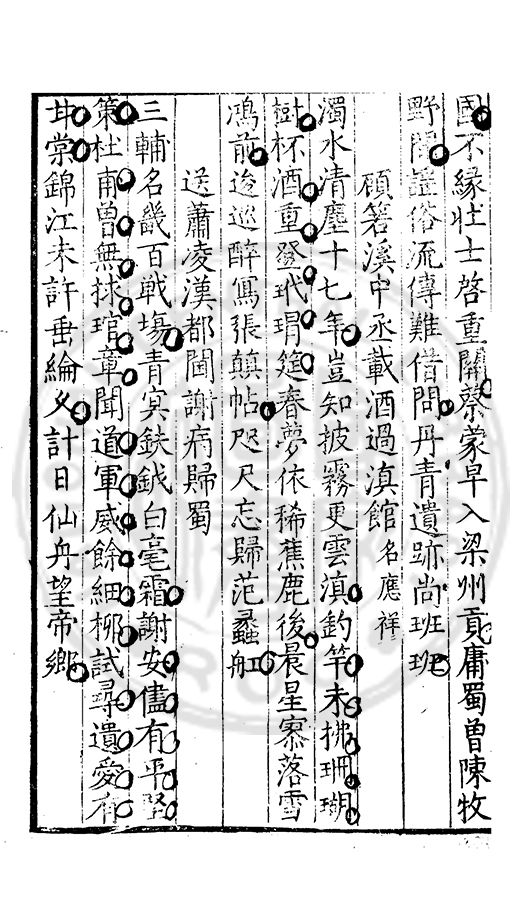 國不緣壮士啓重關蔡蒙早入梁州貢庸蜀曽陳牧
野閒謡俗流傳難借問丹青遺跡尚班班
頋箬溪中丞載酒過滇館名應祥
濁水清塵十七年豈知披霧更雲滇釣竿未拂珊瑚
樹杯酒重登玳瑁筵春夢依稀蕉鹿後晨星寥落雪
鴻前逡巡醉寫張顛帖咫尺忘歸范蠡舡
送蕭凌漢都閫謝病歸蜀
三輔名畿百戦塲青冥鈇鉞白毫霜謝安儘有平堅
策杜甫曽無捄琯章聞道軍威餘細柳試尋遺愛有
甘棠錦江未許垂綸乆計日仙舟望帝鄉